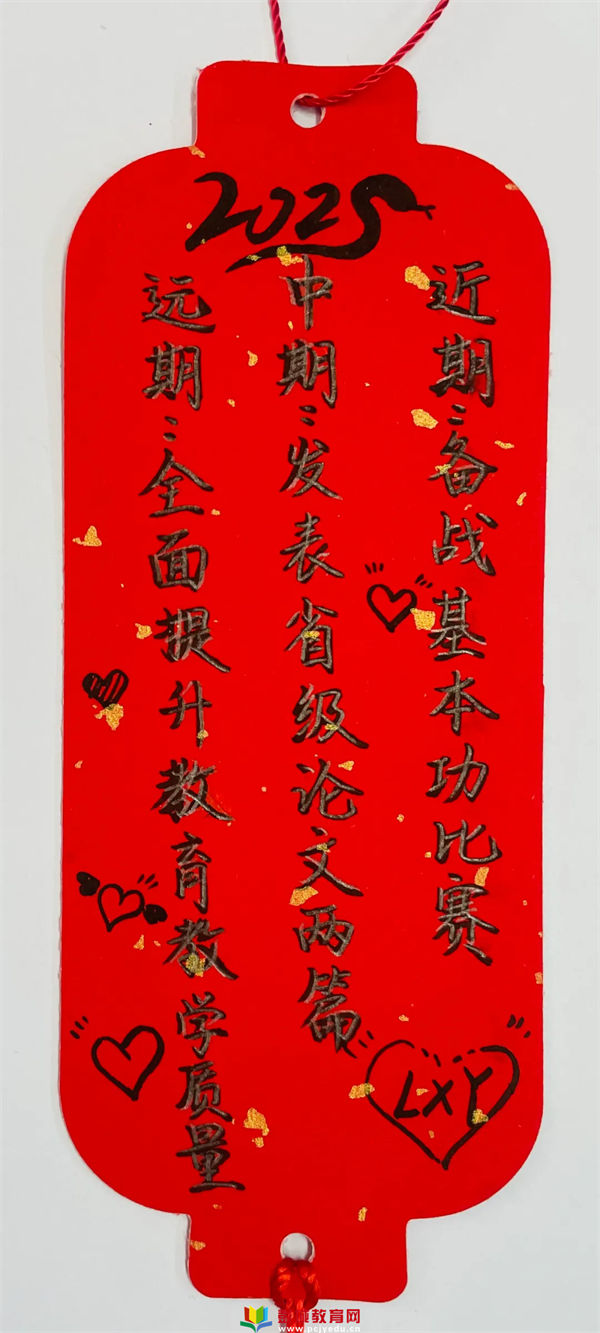 2025
近期：备战基本功比赛
中期：发表省级论文两篇
远期：全面提升教育教学质量
LXY
教育网
www.pcjyedu.cn